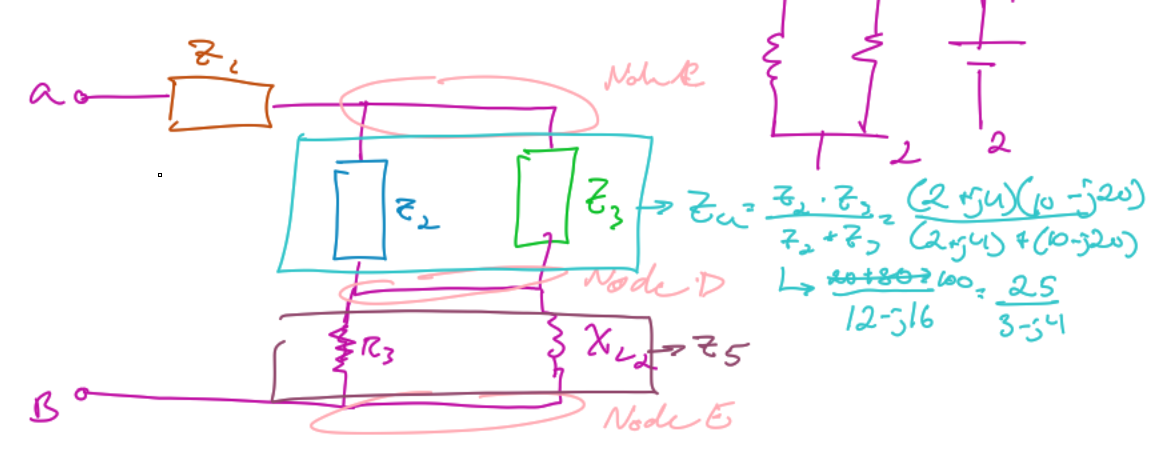 Z₁
Node C
a
2
2
Z₂
Z₃
→ Zₐ = Z₂ · Z₃ / Z₂ + Z₃ = (2+j4)(10-j20) / (2+j4) + (10-j20)
↳ 100 / 12-j16 = 25 / 3-j4
Node D
R₃
X_L₂
→ Z5
B
Node E